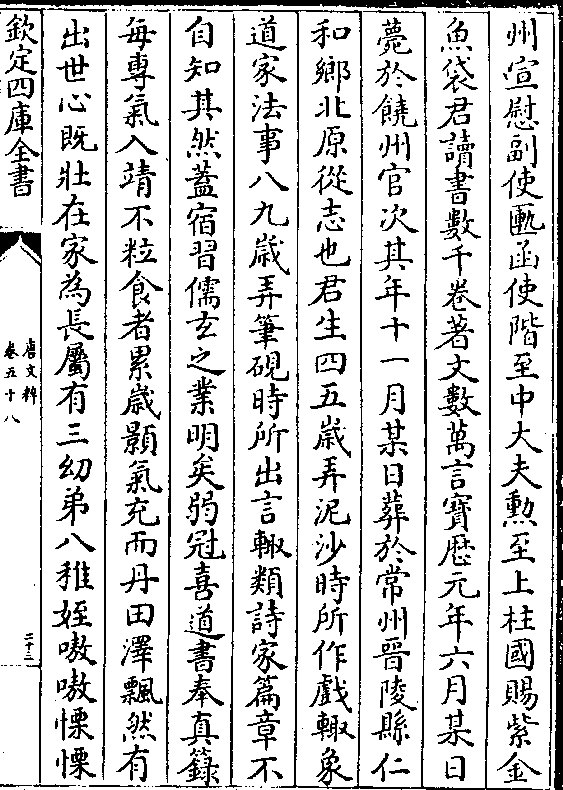 州宣慰副使匭函使階至中大夫勲至上柱國賜紫金
魚袋君讀書數千卷著文數萬言寳厯元年六月某日
薨於饒州官次其年十一月某日葬於常州晉陵縣仁
和鄉北原從志也君生四五歳弄泥沙時所作戲輙象
道家法事八九歳弄筆硯時所出言輙類詩家篇章不
自知其然蓋宿習儒玄之業明矣弱冠喜道書奉真籙
每專氣入靖不粒食者累歳顥氣充而丹田澤飄然有
出世心既壯在家為長屬有三幼弟八稚姪嗷嗷慄慄
欽定四庫全書
唐文粹
卷五十八
三十三